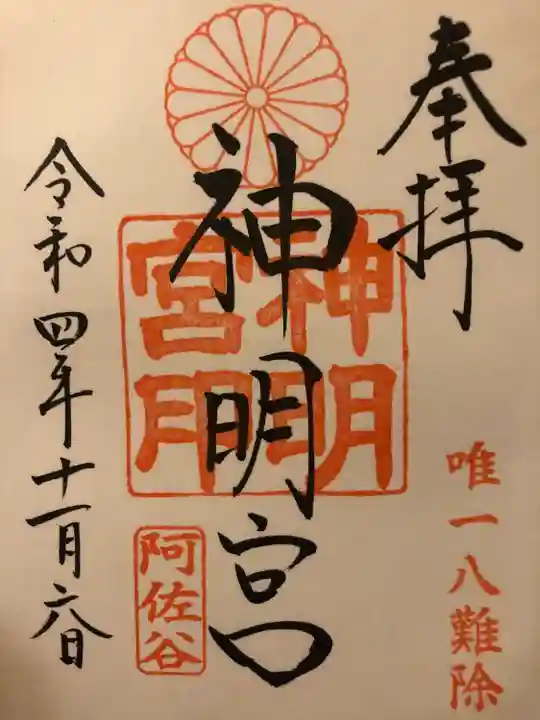 奉拝
唯一八難除
神明宮
神明宮印
阿佐谷
令和四年十一月六日